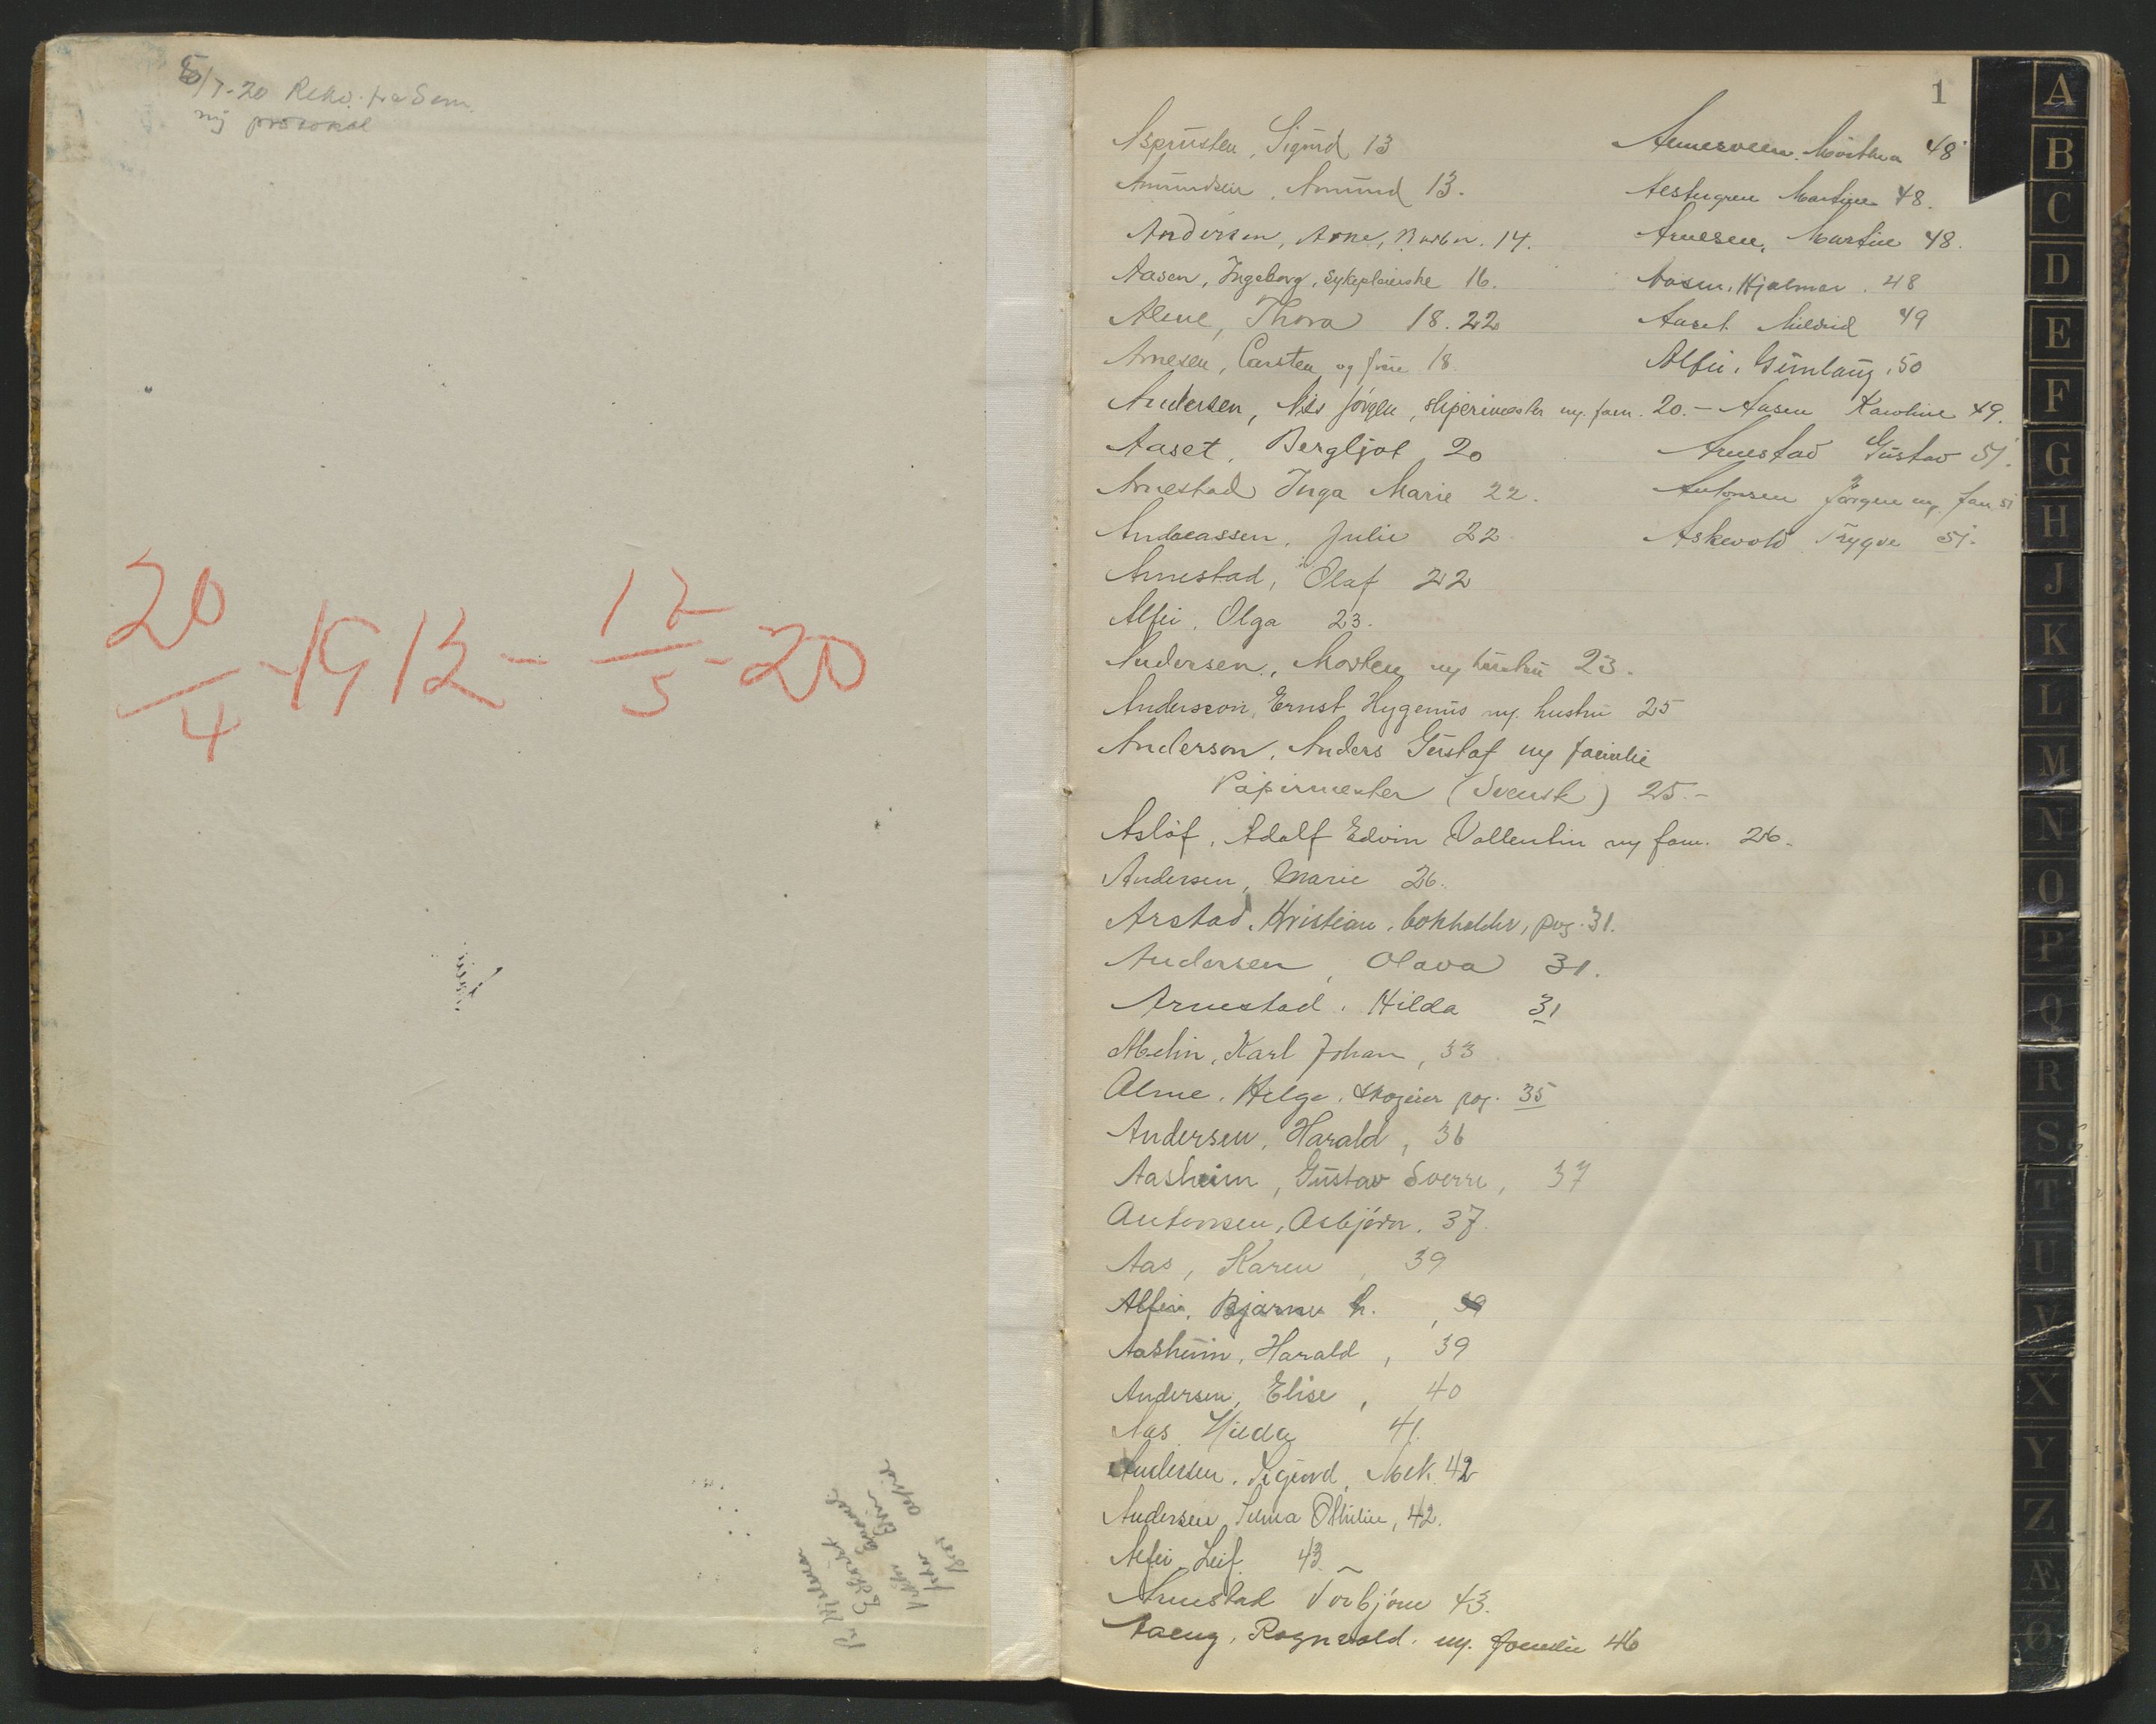 /7-20 Rekv. fra Sem.
ny protokol
20/4 - 1913 - 12/5 - 20
1
Asprusten, Sigurd 13
Amundsen, Amund 13.
Andersen, Arne, 14.
Aasen, Ingeborg, sykepleierske 16.
Alme, Thora 18. 22
Arnesen, Carsten og frue 18
Andersen, Nils Jörgen, sliperimester m. fam. 20.
Aaset, Bergljot 20
Arnestad Inga Marie 22.
Andreassen, Julie 22.
Arnestad, Olaf 22
Alfei, Olga 23.
Andersen, Morten m hustru 23.
Andersson, Ernst Hygenus m. hustru 25
Anderson, Anders Gustaf m familie
Papirmester (Svensk) 25.-
Aslöf, Adolf Edvin Vallentin m fam. 26.
Andersen, Marie 26.
Arstad, Kristian, bokholder, pag. 31.
Andersen, Olava 31.
Arnestad, Hilda 31
Karl Johan, 33
Alme, Helge, skogeier pag. 35
Andersen, Harald, 36
Aasheim, Gustav Sverre, 37
Antonsen, Asbjörn, 37.
Aas, Karen, 39
Alfei, Bjarne h.,
Aasheim, Harald, 39
Andersen, Elise, 40
Aas Hilda 41.
Andersen, Sigurd, Mek. 42
Andersen, Selma Othilie, 42.
Alfei, Leif. 43.
Arnestad Torbjörn 43.
Ragnvald. m. familie 46
Martha 48
Martine 48.
Arnesen, Martin 48.
Aasen, Hjalmar. 48
Aaset Mildrid 49
Alfei, Gunlaug, 50
Aasen Karoline 49.
Arnestad Gustav 51.
Antonsen Jörgen m. fam. 51
Askevold Trygve 51.
A
B
C
D
E
F
G
H
J
K
L
M
N
O
P
Q
R
S
T
U
V
X
Y
Z
Æ
Ø